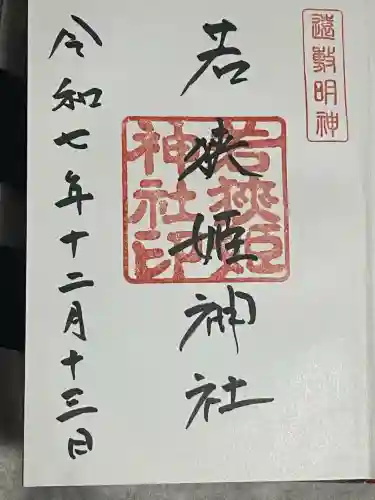 遠敷明神
若狭姫神社
若狭姫神社印
令和七年十二月十三日